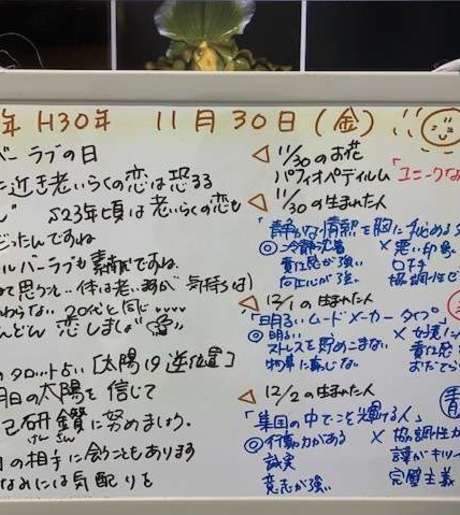 年 H30年 11月30日(金)
バー ラブの日
に近き老いらくの恋は恐る
S23年頃は老いらくの恋も
だったんですね
ルバーラブも素敵ですね
て思うと…体は老いるが気持ちは)
わらない 20代と同じ
んどん 恋しましょ
のタロット占い[太陽19逆位置]
明日の太陽を信じて
己研鑽に努めましょう.
けんさん
の相手に会うこともあります
なみには気配りを
◁ 11/30のお花
パフィオペディルム「ユニークな
◁ 11/30の生まれた人
「静かな情熱を胸に秘める
◎冷静沈着 × 悪い印象
責任感が強い ロ下手
向上心が強い. 協調性ゼ
◁ 12/1の生まれた人
「明るいムードメーカータイプ」
◎明るい
ストレスを貯めこまない 責任感
物事に動じない おだてら
◁ 12/2の生まれた人
青
「集団の中でこそ輝ける人」
◎行動力がある × 協調性が
誠実
意志が強い 完璧主義